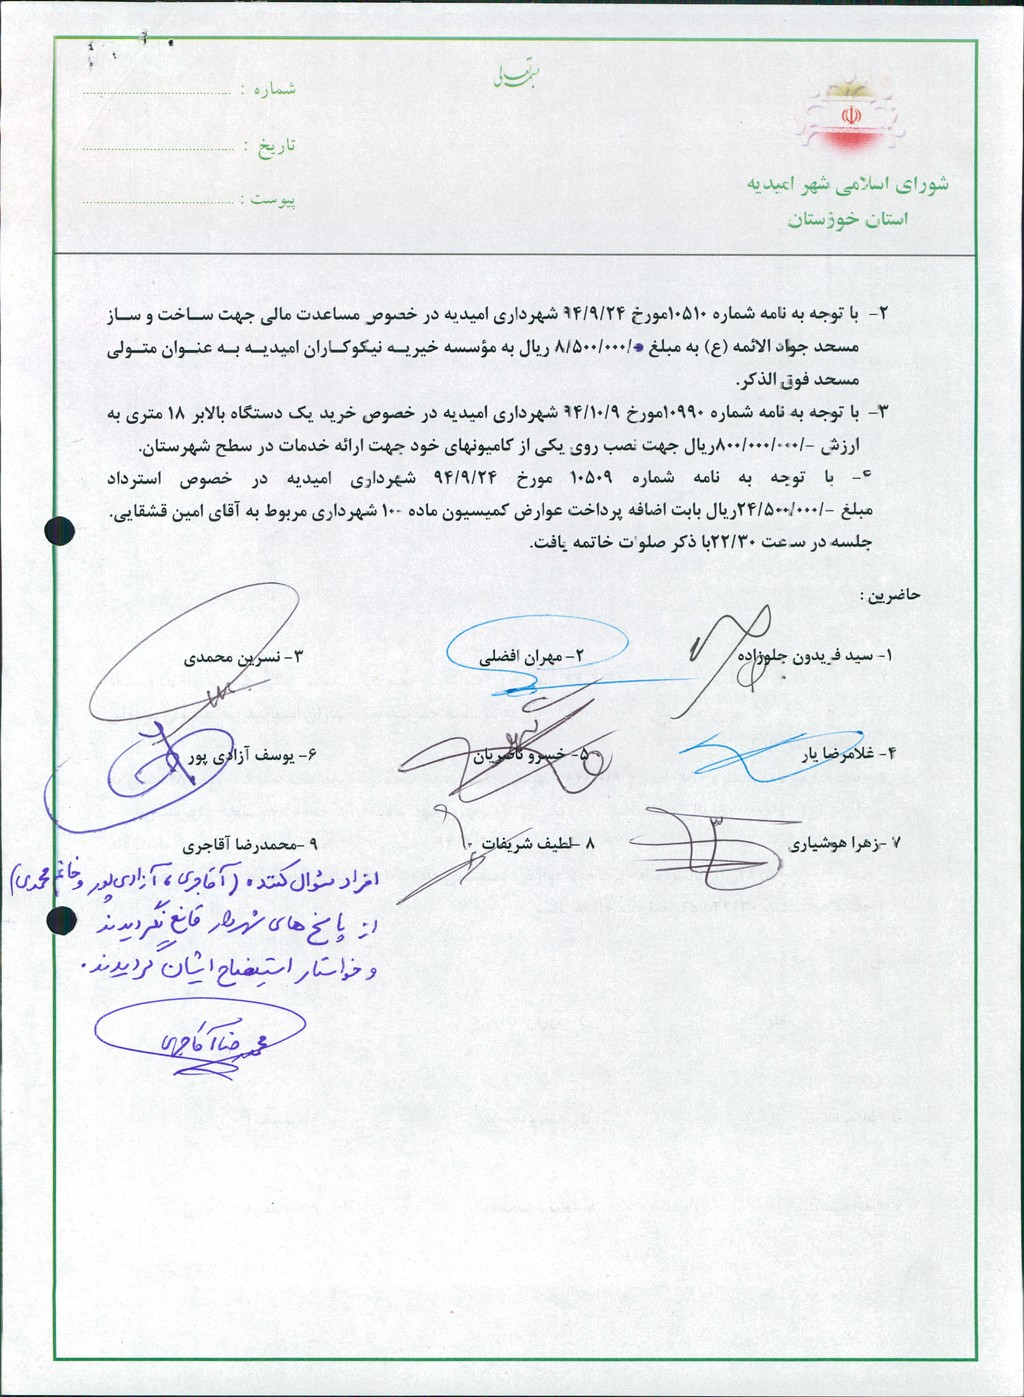 بسمه تعالی
شماره :
تاریخ :
پیوست :
شورای اسلامی شهر امیدیه
استان خوزستان
۲- با توجه به نامه شماره ۱۰۵۱۰مورخ ۹۴/۹/۲۴ شهرداری امیدیه در خصوص مساعدت مالی جهت ساخت و ساز
مسجد جواد الائمه (ع) به مبلغ ۸/۵۰۰/۰۰۰/۰ ریال به مؤسسه خیریه نیکوکاران امیدیه به عنوان متولی
مسجد فوق الذکر.
۳- با توجه به نامه شماره ۱۰۹۹۰مورخ ۹۴/۱۰/۹ شهرداری امیدیه در خصوص خرید یک دستگاه بالابر ۱۸ متری به
ارزش -/۸۰۰/۰۰۰/۰۰۰ریال جهت نصب روی یکی از کامیونهای خود جهت ارائه خدمات در سطح شهرستان.
۴- با توجه به نامه شماره ۱۰۵۰۹ مورخ ۹۴/۹/۲۴ شهرداری امیدیه در خصوص استرداد
مبلغ -/۲۴/۵۰۰/۰۰۰ریال بابت اضافه پرداخت عوارض کمیسیون ماده ۱۰۰ شهرداری مربوط به آقای امین قشقایی.
جلسه در ساعت ۲۲/۳۰با ذکر صلوات خاتمه یافت.
حاضرین :
۱- سید فریدون جلوزاده ۲- مهران افضلی ۳- نسرین محمدی
۴- غلامرضا یار ۵- خسرو ناصریان ۶- یوسف آزادی پور
۷ -زهرا هوشیاری ۸ -لطیف شریفات ۹ -محمدرضا آقاجری
افراد سئوال کننده (آقاجری، آزادی پور و خانم محمدی)
از پاسخ های شهردار قانع نگردیدند
و خواستار استیضاح ایشان گردیدند.
محمدرضا آقاجری